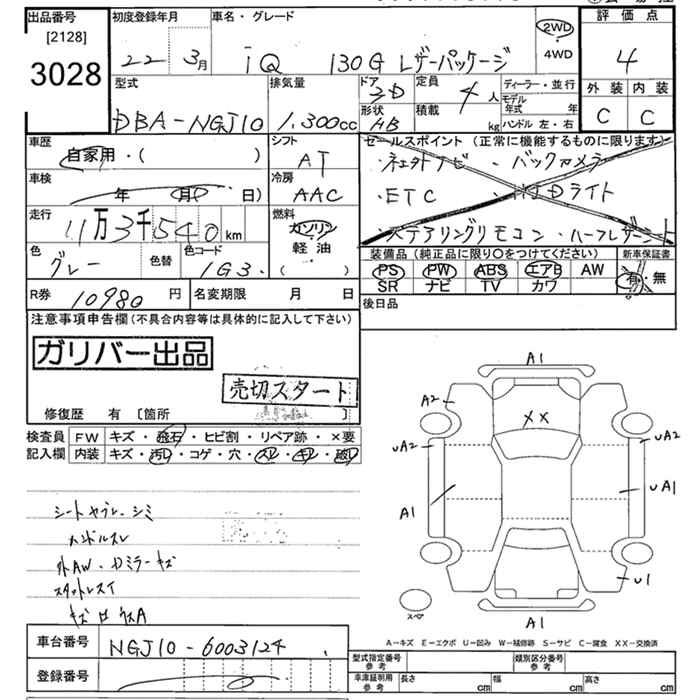 出品番号 [2128] 3028
初度登録年月 22年 3月
車名・グレード iQ 130G レザーパッケージ
2WD
4WD
評価点 4
外装 内装
C C
型式 DBA-NGJ10
排気量 1,300cc
ドア 3D
形状 HB
定員 4人
積載 kg
ディーラー・並行
モデル年式 年
ハンドル 左・右
車歴 自家用・( )
シフト AT
セールスポイント (正常に機能するものに限ります)
・バックカメラ
・ETC ・HIDライト
・ステアリングリモコン・ハーフレザーシート
車検 年 月 日)
冷房 AAC
走行 11万3千540km
燃料 ガソリン
軽油
( )
色 グレー
色替
色コード 1G3
装備品 (純正品に限り○をつけてください)
新車保証書
PS PW ABS エアB AW
有・無
SR ナビ TV カワ
R券 10980円
名変期限 月 日
後日品
注意事項申告欄(不具合内容等は具体的に記入して下さい)
ガリバー出品
売切スタート
修復歴 有 [箇所 ]
検査員 FW キズ・飛石・ヒビ割・リペア跡・×要
記入欄 内装 キズ・汚れ・コゲ・穴・スレ・キレ・破れ
シートヤブレ・シミ
ハンドルスレ
外AW・ドミラーキズ
A1
A2
XX
uA2
uA2
A1
uA1
u1
スペア
A1
A-キズ E-エクボ U-凹み W-補修跡 S-サビ C-腐食 XX-交換済
車台番号 NGJ10-6003124
型式指定番号 参考
類別区分番号 参考
登録番号
車庫証明用 参考 長さ cm 幅 cm 高さ cm